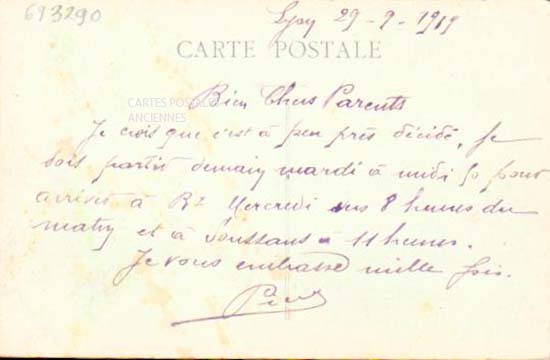 693290
29-9-1919
CARTE POSTALE
CARTES POSTALES
ANCIENNES
Bien Chers Parents
Je crois que c'est à peu près décidé, je
dois partir demain mardi à midi 50 pour
arriver à Bx Mercredi vers 8 heures du
matin et à Soussans à 11 heures.
Je vous embrasse mille fois.